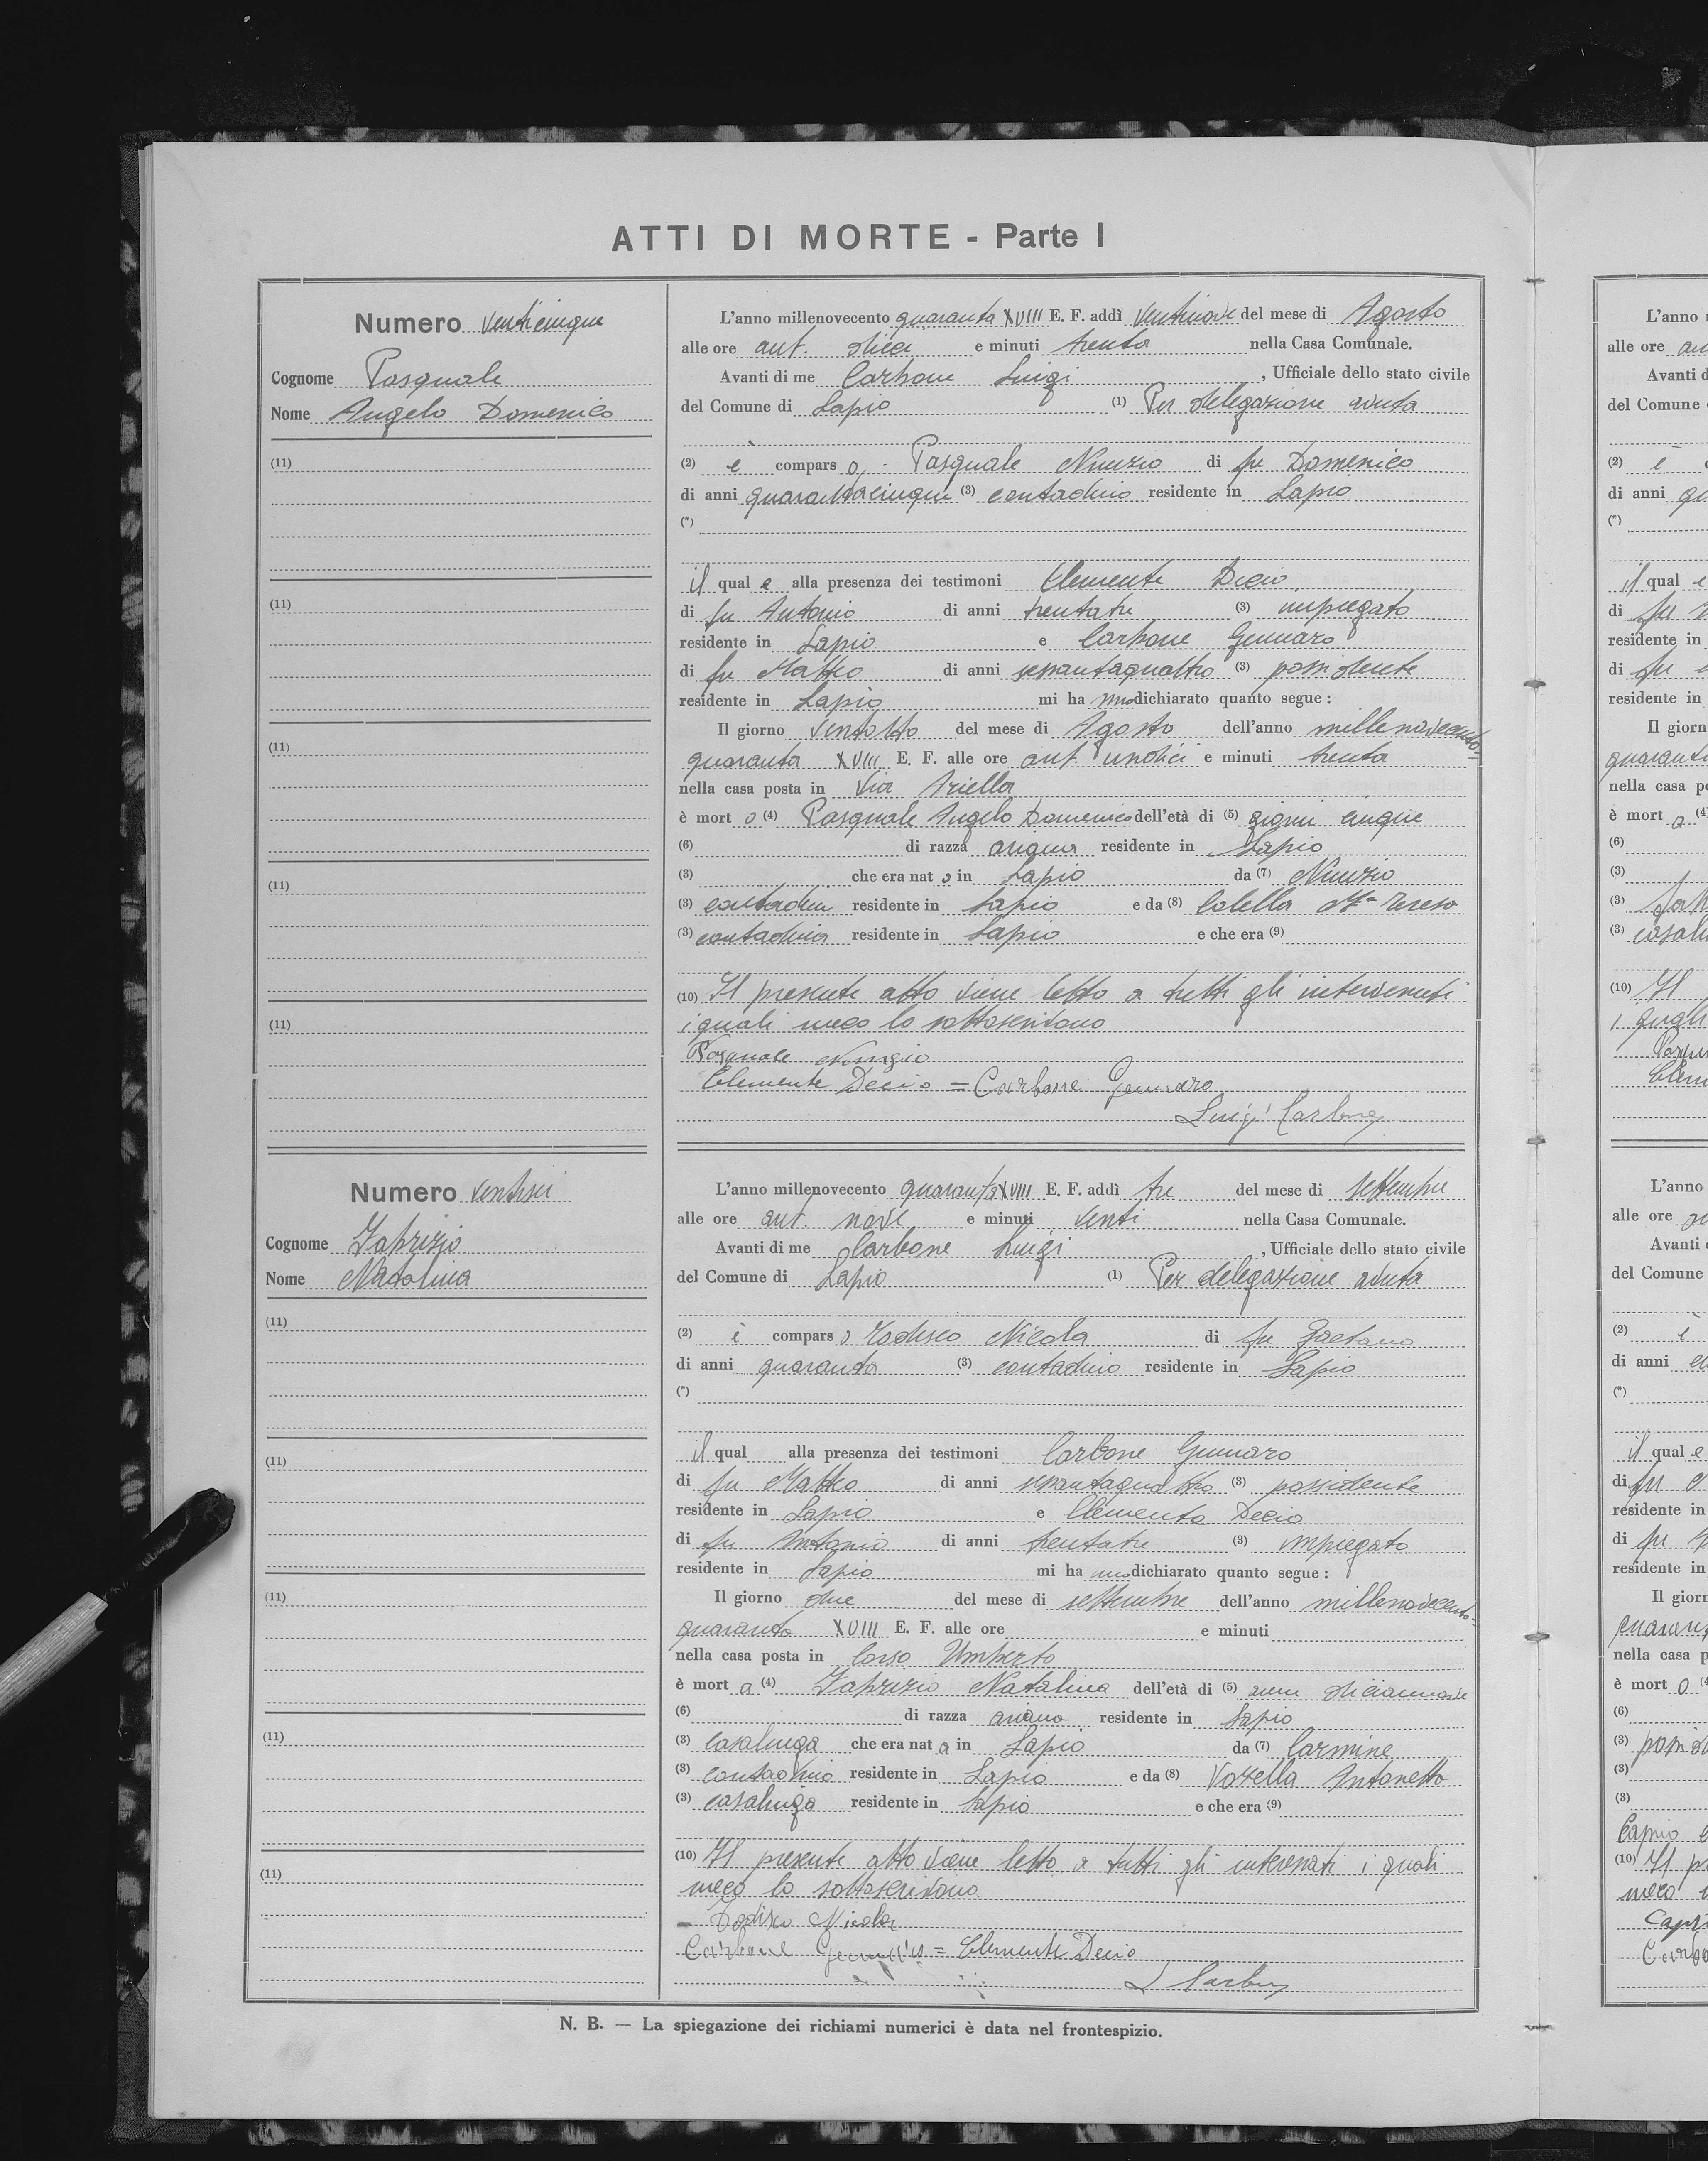 ATTI DI MORTE - Parte I
Numero venticinque
Cognome Pasquale
Nome Angelo Domenico
(11)
(11)
(11)
(11)
(11)
L'anno millenovecento quaranta XVIII E. F. addì ventinove del mese di Agosto
alle ore ant. dieci e minuti trenta nella Casa Comunale.
Avanti di me Carbone Luigi, Ufficiale dello stato civile
del Comune di Lapio (1) Per delegazione avuta
(2) è compars o, Pasquale Nunzio di fu Domenico
di anni quarantacinque (3) contadino residente in Lapio
(*)
il qual e alla presenza dei testimoni Clemente Decio
di fu Antonio di anni trentatre (3) impiegato
residente in Lapio e Carbone Gennaro
di fu Matteo di anni sessantaquattro (3) possidente
residente in Lapio mi ha nno dichiarato quanto segue :
Il giorno ventotto del mese di Agosto dell'anno millenovecento-
quaranta XVIII E. F. alle ore ant. undici e minuti trenta
nella casa posta in Via Ariella
è mort o (4) Pasquale Angelo Domenico dell'età di (5) giorni cinque
(6) di razza ariana residente in Lapio
(3) che era nat o in Lapio da (7) Nunzio
(3) contadino residente in Lapio e da (8) Colella Ma Teresa
(3) contadina residente in Lapio e che era (9)
(10) Il presente atto viene letto a tutti gli intervenuti
i quali meco lo sottoscrivono
Pasquale Nunzio
Clemente Decio = Carbone Gennaro
Luigi Carbone
Numero ventisei
Cognome Fabrizio
Nome Natalina
(11)
(11)
(11)
(11)
(11)
L'anno millenovecento quaranta XVIII E. F. addì tre del mese di settembre
alle ore ant. nove e minuti venti nella Casa Comunale.
Avanti di me Carbone Luigi, Ufficiale dello stato civile
del Comune di Lapio (1) Per delegazione avuta
(2) è compars o Todisco Nicola di fu Gaetano
di anni quaranta (3) contadino residente in Lapio
(*)
il qual alla presenza dei testimoni Carbone Gennaro
di fu Matteo di anni sessantaquattro (3) possidente
residente in Lapio e Clemente Decio
di fu Antonio di anni trentatre (3) impiegato
residente in Lapio mi ha nno dichiarato quanto segue :
Il giorno due del mese di settembre dell'anno millenovecento-
quaranta XVIII E. F. alle ore e minuti
nella casa posta in Corso Umberto
è mort a (4) Fabrizio Natalina dell'età di (5) anni diciannove
(6) di razza ariana residente in Lapio
(3) casalinga che era nat a in Lapio da (7) Carmine
(3) contadino residente in Lapio e da (8) Vozella Antonetta
(3) casalinga residente in Lapio e che era (9)
(10) Il presente atto viene letto a tutti gli interessati i quali
meco lo sottoscrivono
Todisco Nicola
Carbone Gennaro = Clemente Decio
L Carbone
N. B. — La spiegazione dei richiami numerici è data nel frontespizio.